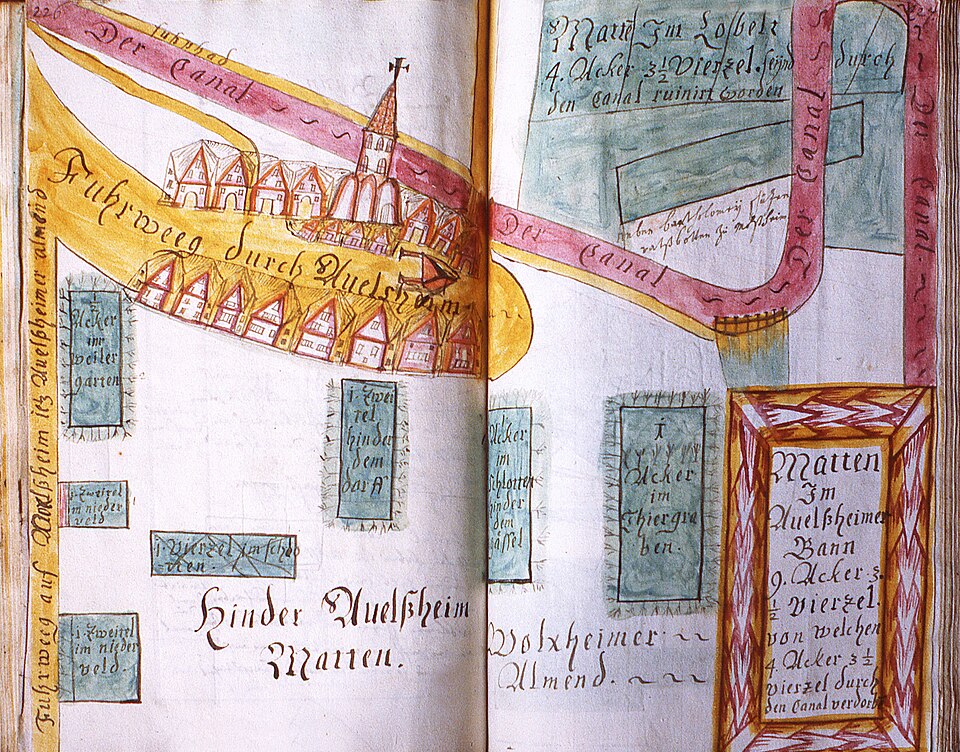 226
Der
fuhrpfad
Canal
Fuhrweeg durch Auelsheim
Fuhrweeg auf Auelsheim itz Auelßheimer almend
½
Acker
im
weiler
garten
1. Zweitel
im nieder
veld
1. Vierzel im scho
1. Zweitel
im nieder
veld.
1. Zwei
tel
hinder
dem
dorff
Hinder Auelßheim
Matten.
Matten Im Loßbelt
4. Acker 3½ Vierzel. seind durch
den Canal ruinirt worden
Der Canal
Der Canal
Der Canal
Acker
im
schlotten
hinder
dem
1
Acker
im
Thiergra
ben.
Wolxheimer
Almend.
Matten
Im
Auelßheimer
Bann
9. Acker 3.
½ Vierzel.
von welchen
4. Acker 3½
vierzel durch
den Canal verdorb